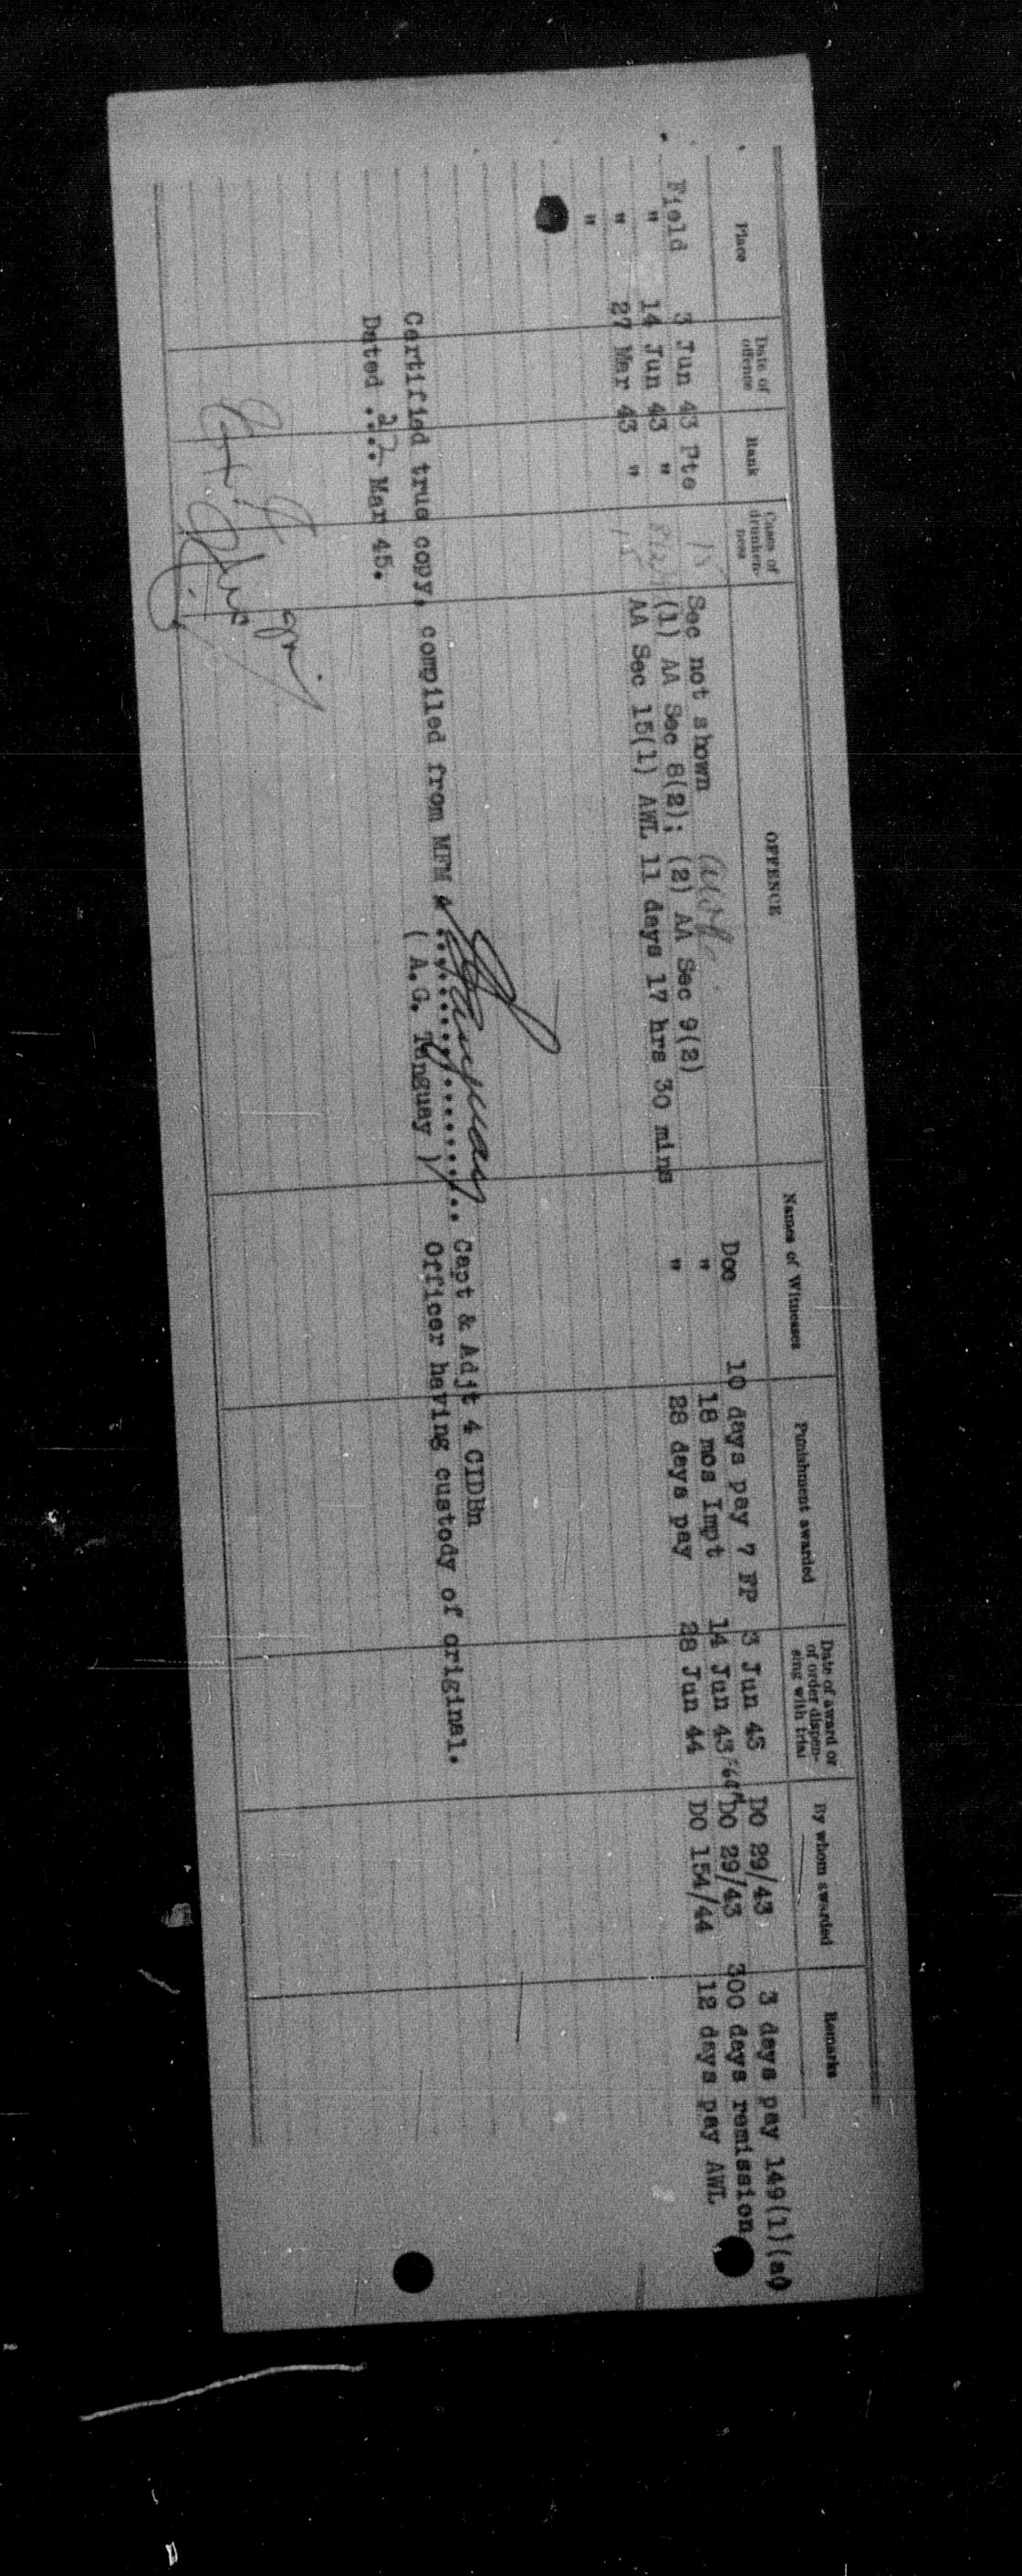 Place Date of offence Rank Cases of drunken-ness OFFENCE Names of Witnesses Punishment awarded Date of award or of order dispen-sing with trial By whom awarded Remarks
Field 3 Jun 43 Pte 15 Sec not shown Doc 10 days pay 7 FP 3 Jun 43 DO 29/43 3 days pay 149(1)(a)
" 14 Jun 43 " (1) AA Sec 8(2); (2) AA Sec 9(2) " 18 mos Impt 14 Jun 43 DO 29/43 300 days remission
" 27 Mar 43 " AA Sec 15(1) AWL 11 days 17 hrs 30 mins " 28 days pay 28 Jun 44 DO 154/44 12 days pay AWL
"
Certified true copy, compiled from MFM 4 .................. Capt & Adjt 4 CIDBn
Dated .22. Mar 45. ( A.G. Tanguay ) Officer having custody of original.